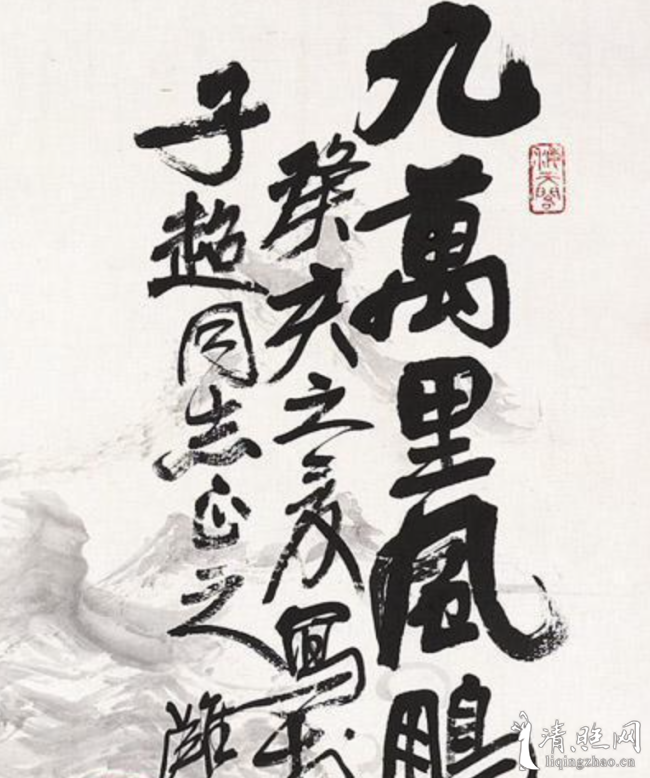 九萬里風鵬
癸亥之夏寫
子超同志正之
清旺网
liqingzhao.cn